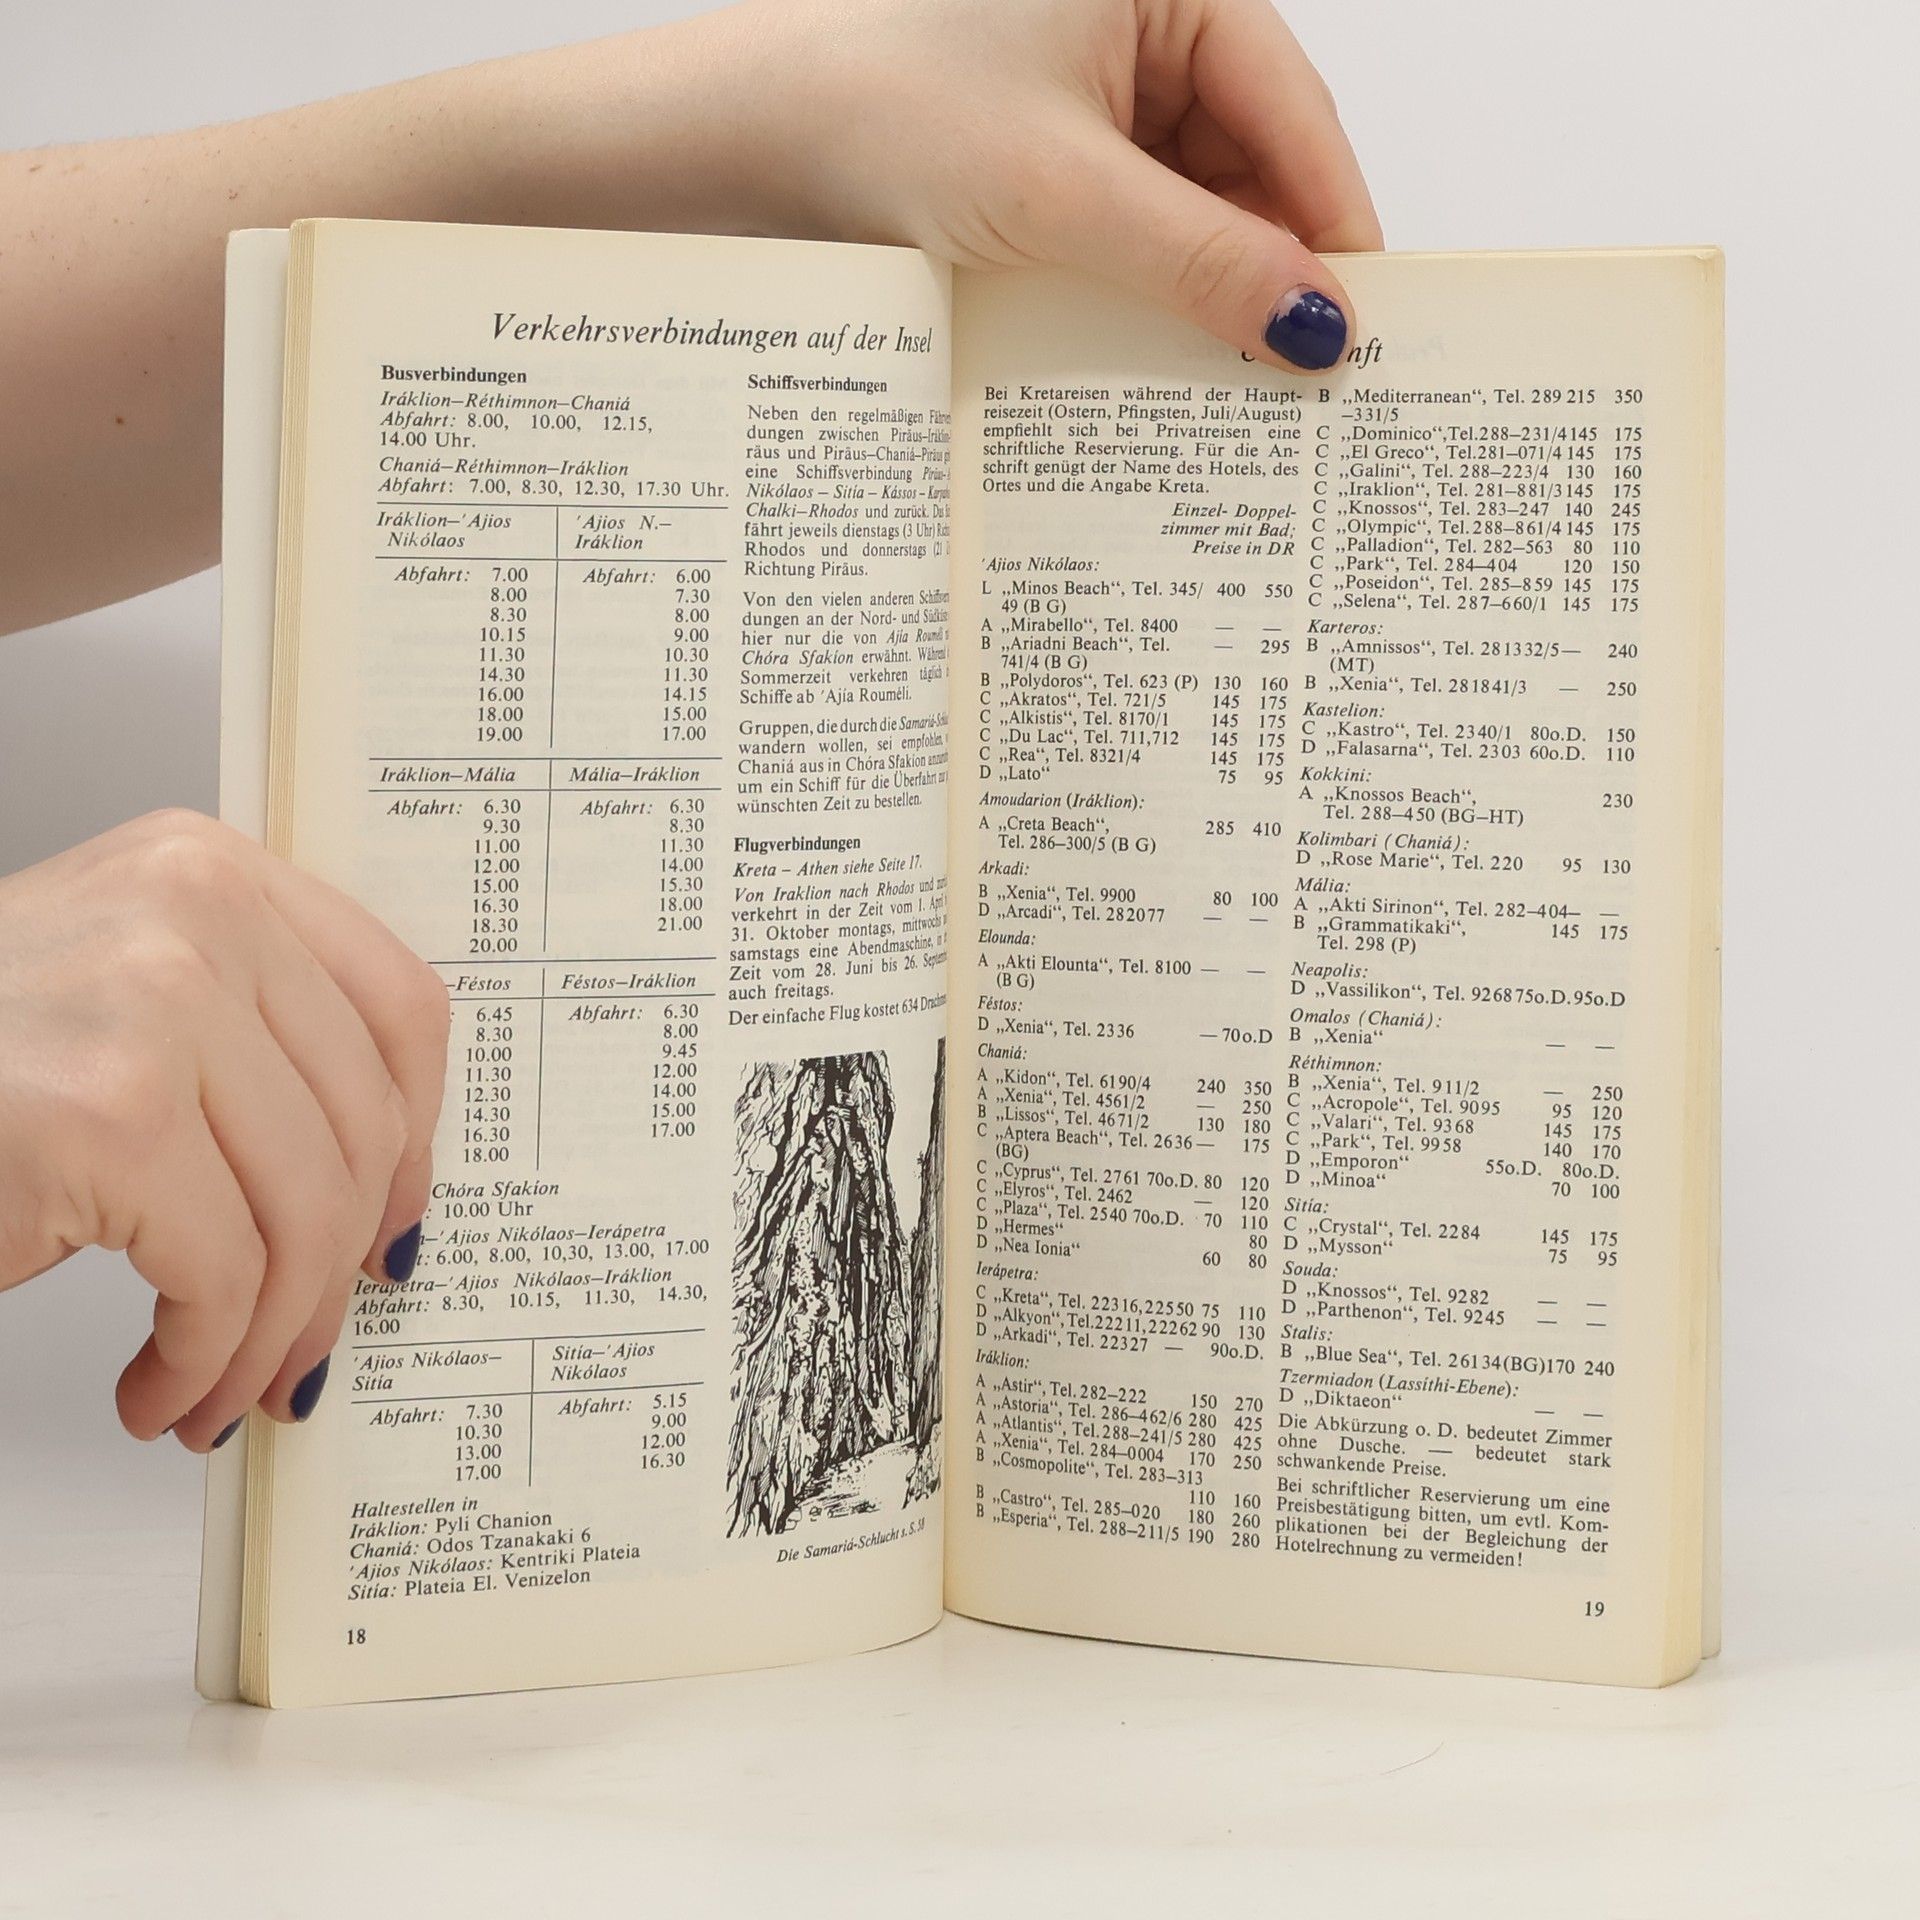 Verkehrsverbindungen auf der Insel
Busverbindungen
Iráklion–Réthimnon–Chaniá
Abfahrt: 8.00, 10.00, 12.15,
14.00 Uhr.
Chaniá–Réthimnon–Iráklion
Abfahrt: 7.00, 8.30, 12.30, 17.30 Uhr.
Iráklion–'Ajios 'Ajios N.–
Nikólaos Iráklion
Abfahrt: 7.00 Abfahrt: 6.00
8.00 7.30
8.30 8.00
10.15 9.00
11.30 10.30
14.30 11.30
16.00 14.15
18.00 15.00
19.00 17.00
Iráklion–Mália Mália–Iráklion
Abfahrt: 6.30 Abfahrt: 6.30
9.30 8.30
11.00 11.30
12.00 14.00
15.00 15.30
16.30 18.00
18.30 21.00
20.00
–Féstos Féstos–Iráklion
: 6.45 Abfahrt: 6.30
8.30 8.00
10.00 9.45
11.30 12.00
12.30 14.00
14.30 15.00
16.30 17.00
18.00
Chóra Sfakíon
: 10.00 Uhr
–'Ajios Nikólaos–Ierápetra
: 6.00, 8.00, 10,30, 13.00, 17.00
Ierápetra–'Ajios Nikólaos–Iráklion
Abfahrt: 8.30, 10.15, 11.30, 14.30,
16.00
'Ajios Nikólaos– Sitía–'Ajios
Sitía Nikólaos
Abfahrt: 7.30 Abfahrt: 5.15
10.30 9.00
13.00 12.00
17.00 16.30
Haltestellen in
Iráklion: Pyli Chanion
Chaniá: Odos Tzanakaki 6
'Ajios Nikólaos: Kentriki Plateia
Sitía: Plateia El. Venizelon
18
Schiffsverbindungen
Neben den regelmäßigen
dungen zwischen Piräus–
räus und Piräus–Chaniá–Piräus
eine Schiffsverbindung
Nikólaos – Sitía – Kássos –
Chalki–Rhodos und zurück.
fährt jeweils dienstags (3 Uhr)
Rhodos und donnerstags (21
Richtung Piräus.
Von den vielen anderen
dungen an der Nord- und
hier nur die von Ajia Rouméli
Chóra Sfakíon erwähnt.
Sommerzeit verkehren täglich
Schiffe ab 'Ajía Rouméli.
Gruppen, die durch die
wandern wollen, sei empfohlen,
Chaniá aus in Chóra Sfakion
um ein Schiff für die Überfahrt
wünschten Zeit zu bestellen.
Flugverbindungen
Kreta – Athen siehe Seite 17.
Von Iraklion nach Rhodos und
verkehrt in der Zeit vom 1. April
31. Oktober montags, mittwochs
samstags eine Abendmaschine, in
Zeit vom 28. Juni bis 26.
auch freitags.
Der einfache Flug kostet 634
Die Samariá-Schlucht s. S. 58
Bei Kretareisen während der Haupt-
reisezeit (Ostern, Pfingsten, Juli/August)
empfiehlt sich bei Privatreisen eine
schriftliche Reservierung. Für die An-
schrift genügt der Name des Hotels, des
Ortes und die Angabe Kreta.
Einzel- Doppel-
zimmer mit Bad;
Preise in DR
'Ajios Nikólaos:
L „Minos Beach“, Tel. 345/ 400 550
49 (B G)
A „Mirabello“, Tel. 8400 — —
B „Ariadni Beach“, Tel. — 295
741/4 (B G)
B „Polydoros“, Tel. 623 (P) 130 160
C „Akratos“, Tel. 721/5 145 175
C „Alkistis“, Tel. 8170/1 145 175
C „Du Lac“, Tel. 711,712 145 175
C „Rea“, Tel. 8321/4 145 175
D „Lato“ 75 95
Amoudarion (Iráklion):
A „Creta Beach“, 285 410
Tel. 286–300/5 (B G)
Arkadi:
B „Xenia“, Tel. 9900 80 100
D „Arcadi“, Tel. 282077 — —
Elounda:
A „Akti Elounta“, Tel. 8100 — —
(B G)
Féstos:
D „Xenia“, Tel. 2336 — 70o.D
Chaniá:
A „Kidon“, Tel. 6190/4 240 350
A „Xenia“, Tel. 4561/2 — 250
B „Lissos“, Tel. 4671/2 130 180
C „Aptera Beach“, Tel. 2636 — 175
(BG)
C „Cyprus“, Tel. 2761 70o.D. 80 120
C „Elyros“, Tel. 2462 — 120
C „Plaza“, Tel. 2540 70o.D. 70 110
D „Hermes“ 80
D „Nea Ionia“ 60 80
Ierápetra:
C „Kreta“, Tel. 22316,22550 75 110
D „Alkyon“, Tel.22211,22262 90 130
D „Arkadi“, Tel. 22327 — 90o.D.
Iráklion:
A „Astir“, Tel. 282–222 150 270
A „Astoria“, Tel. 286–462/6 280 425
A „Atlantis“, Tel.288–241/5 280 425
A „Xenia“, Tel. 284–0004 170 250
B „Cosmopolite“, Tel. 283–313
110 160
B „Castro“, Tel. 285–020 180 260
B „Esperia“, Tel. 288–211/5 190 280
B „Mediterranean“, Tel. 289 215 350
–331/5
C „Dominico“,Tel.288–231/4 145 175
C „El Greco“, Tel.281–071/4 145 175
C „Galini“, Tel. 288–223/4 130 160
C „Iraklion“, Tel. 281–881/3 145 175
C „Knossos“, Tel. 283–247 140 245
C „Olympic“, Tel.288–861/4 145 175
C „Palladion“, Tel. 282–563 80 110
C „Park“, Tel. 284–404 120 150
C „Poseidon“, Tel. 285–859 145 175
C „Selena“, Tel. 287–660/1 145 175
Karteros:
B „Amnissos“, Tel. 281332/5— 240
(MT)
B „Xenia“, Tel. 281841/3 — 250
Kastelion:
C „Kastro“, Tel. 2340/1 80o.D. 150
D „Falasarna“, Tel. 2303 60o.D. 110
Kokkini:
A „Knossos Beach“, 230
Tel. 288–450 (BG–HT)
Kolimbari (Chaniá):
D „Rose Marie“, Tel. 220 95 130
Mália:
A „Akti Sirinon“, Tel. 282–404– —
B „Grammatikaki“, 145 175
Tel. 298 (P)
Neapolis:
D „Vassilikon“, Tel. 926875o.D.95o.D
Omalos (Chaniá):
B „Xenia“ — —
Réthimnon:
B „Xenia“, Tel. 911/2 — 250
C „Acropole“, Tel. 9095 95 120
C „Valari“, Tel. 9368 145 175
C „Park“, Tel. 9958 140 170
D „Emporon“ 55o.D. 80o.D.
D „Minoa“ 70 100
Sitía:
C „Crystal“, Tel. 2284 145 175
D „Mysson“ 75 95
Souda:
D „Knossos“, Tel. 9282 — —
D „Parthenon“, Tel. 9245 — —
Stalis:
B „Blue Sea“, Tel. 26134(BG)170 240
Tzermiadon (Lassíthi-Ebene):
D „Diktaeon“ — —
Die Abkürzung o. D. bedeutet Zimmer
ohne Dusche. — bedeutet stark
schwankende Preise.
Bei schriftlicher Reservierung um eine
Preisbestätigung bitten, um evtl. Kom-
plikationen bei der Begleichung der
Hotelrechnung zu vermeiden!
19